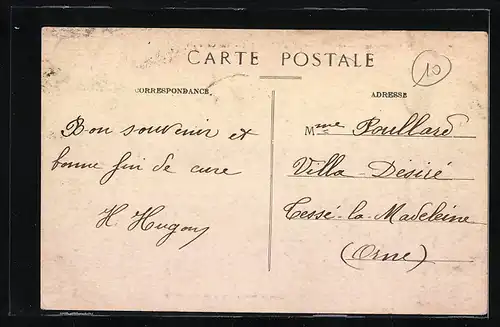 CARTE POSTALE
10
CORRESPONDANCE.
Bon souvenir et
bonne fin de cure
H. Hugon
ADRESSE
Mme Poullard
Villa Désiré
Tessé-la-Madeleine
(Orne)